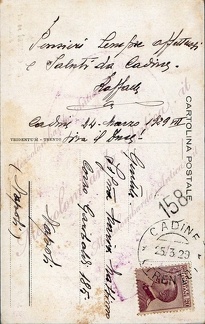 Pensieri sempre affettuosi
e Saluti da Cadine
Raffaele
Cadine 24 Marzo 1929 VII
Viva il Duce!
CARTOLINA POSTALE
TRIDENTUM - TRENTO
158
CADINE
25.3.29
TRENTO
Gentile
Maria
Corso Garibaldi 185
Napoli
(Napoli)